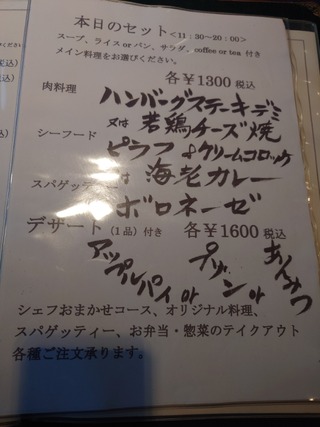 本日のセット<11:30~20:00>
スープ、ライス or パン、サラダ、coffee or tea 付き
メイン料理をお選びください。
各¥1300 税込
肉料理 ハンバーグステーキデミ
又は 若鶏チーズ焼
シーフード ピラフ &クリームコロッケ
又は 海老カレー
スパゲッティー ボロネーゼ
デザート（1品）付き 各¥1600 税込
アップルパイ or プリン or あんみつ
シェフおまかせコース、オリジナル料理、
スパゲッティー、お弁当・惣菜のテイクアウト
各種ご注文承ります。